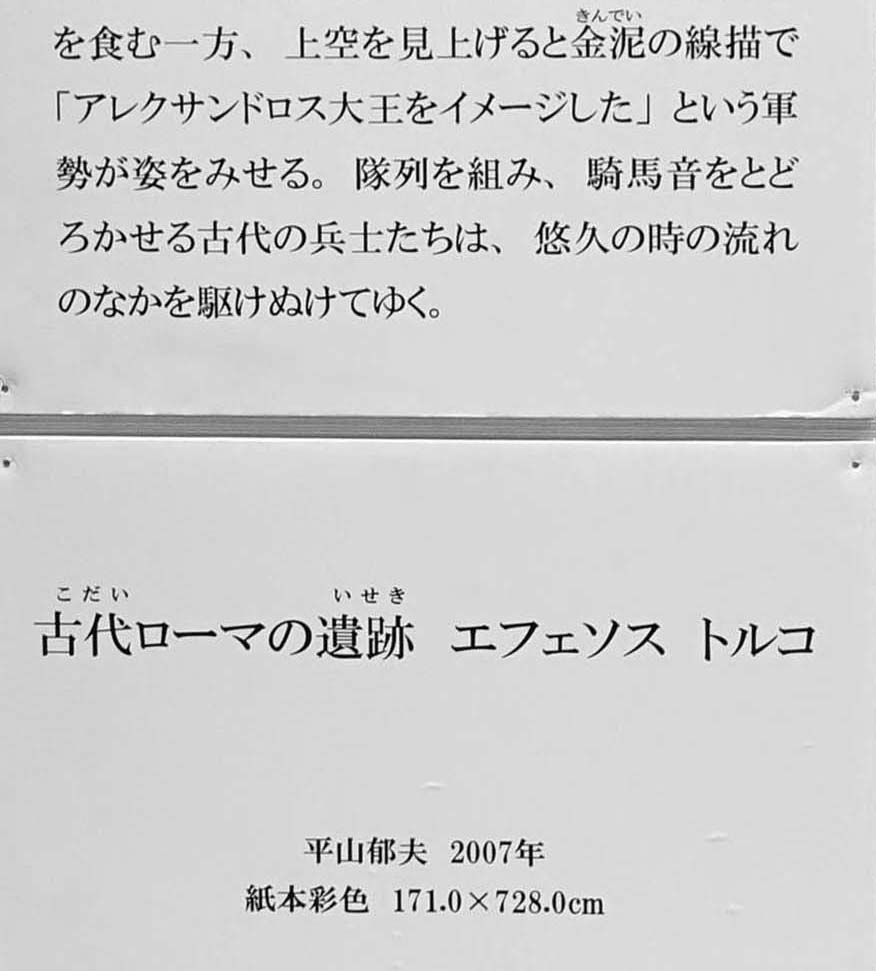 を食む一方、上空を見上げると金泥の線描で
きんでい
「アレクサンドロス大王をイメージした」という軍
勢が姿をみせる。隊列を組み、騎馬音をとど
ろかせる古代の兵士たちは、悠久の時の流れ
のなかを駆けぬけてゆく。
こだい いせき
古代ローマの遺跡 エフェソス トルコ
平山郁夫 2007年
紙本彩色 171.0×728.0cm